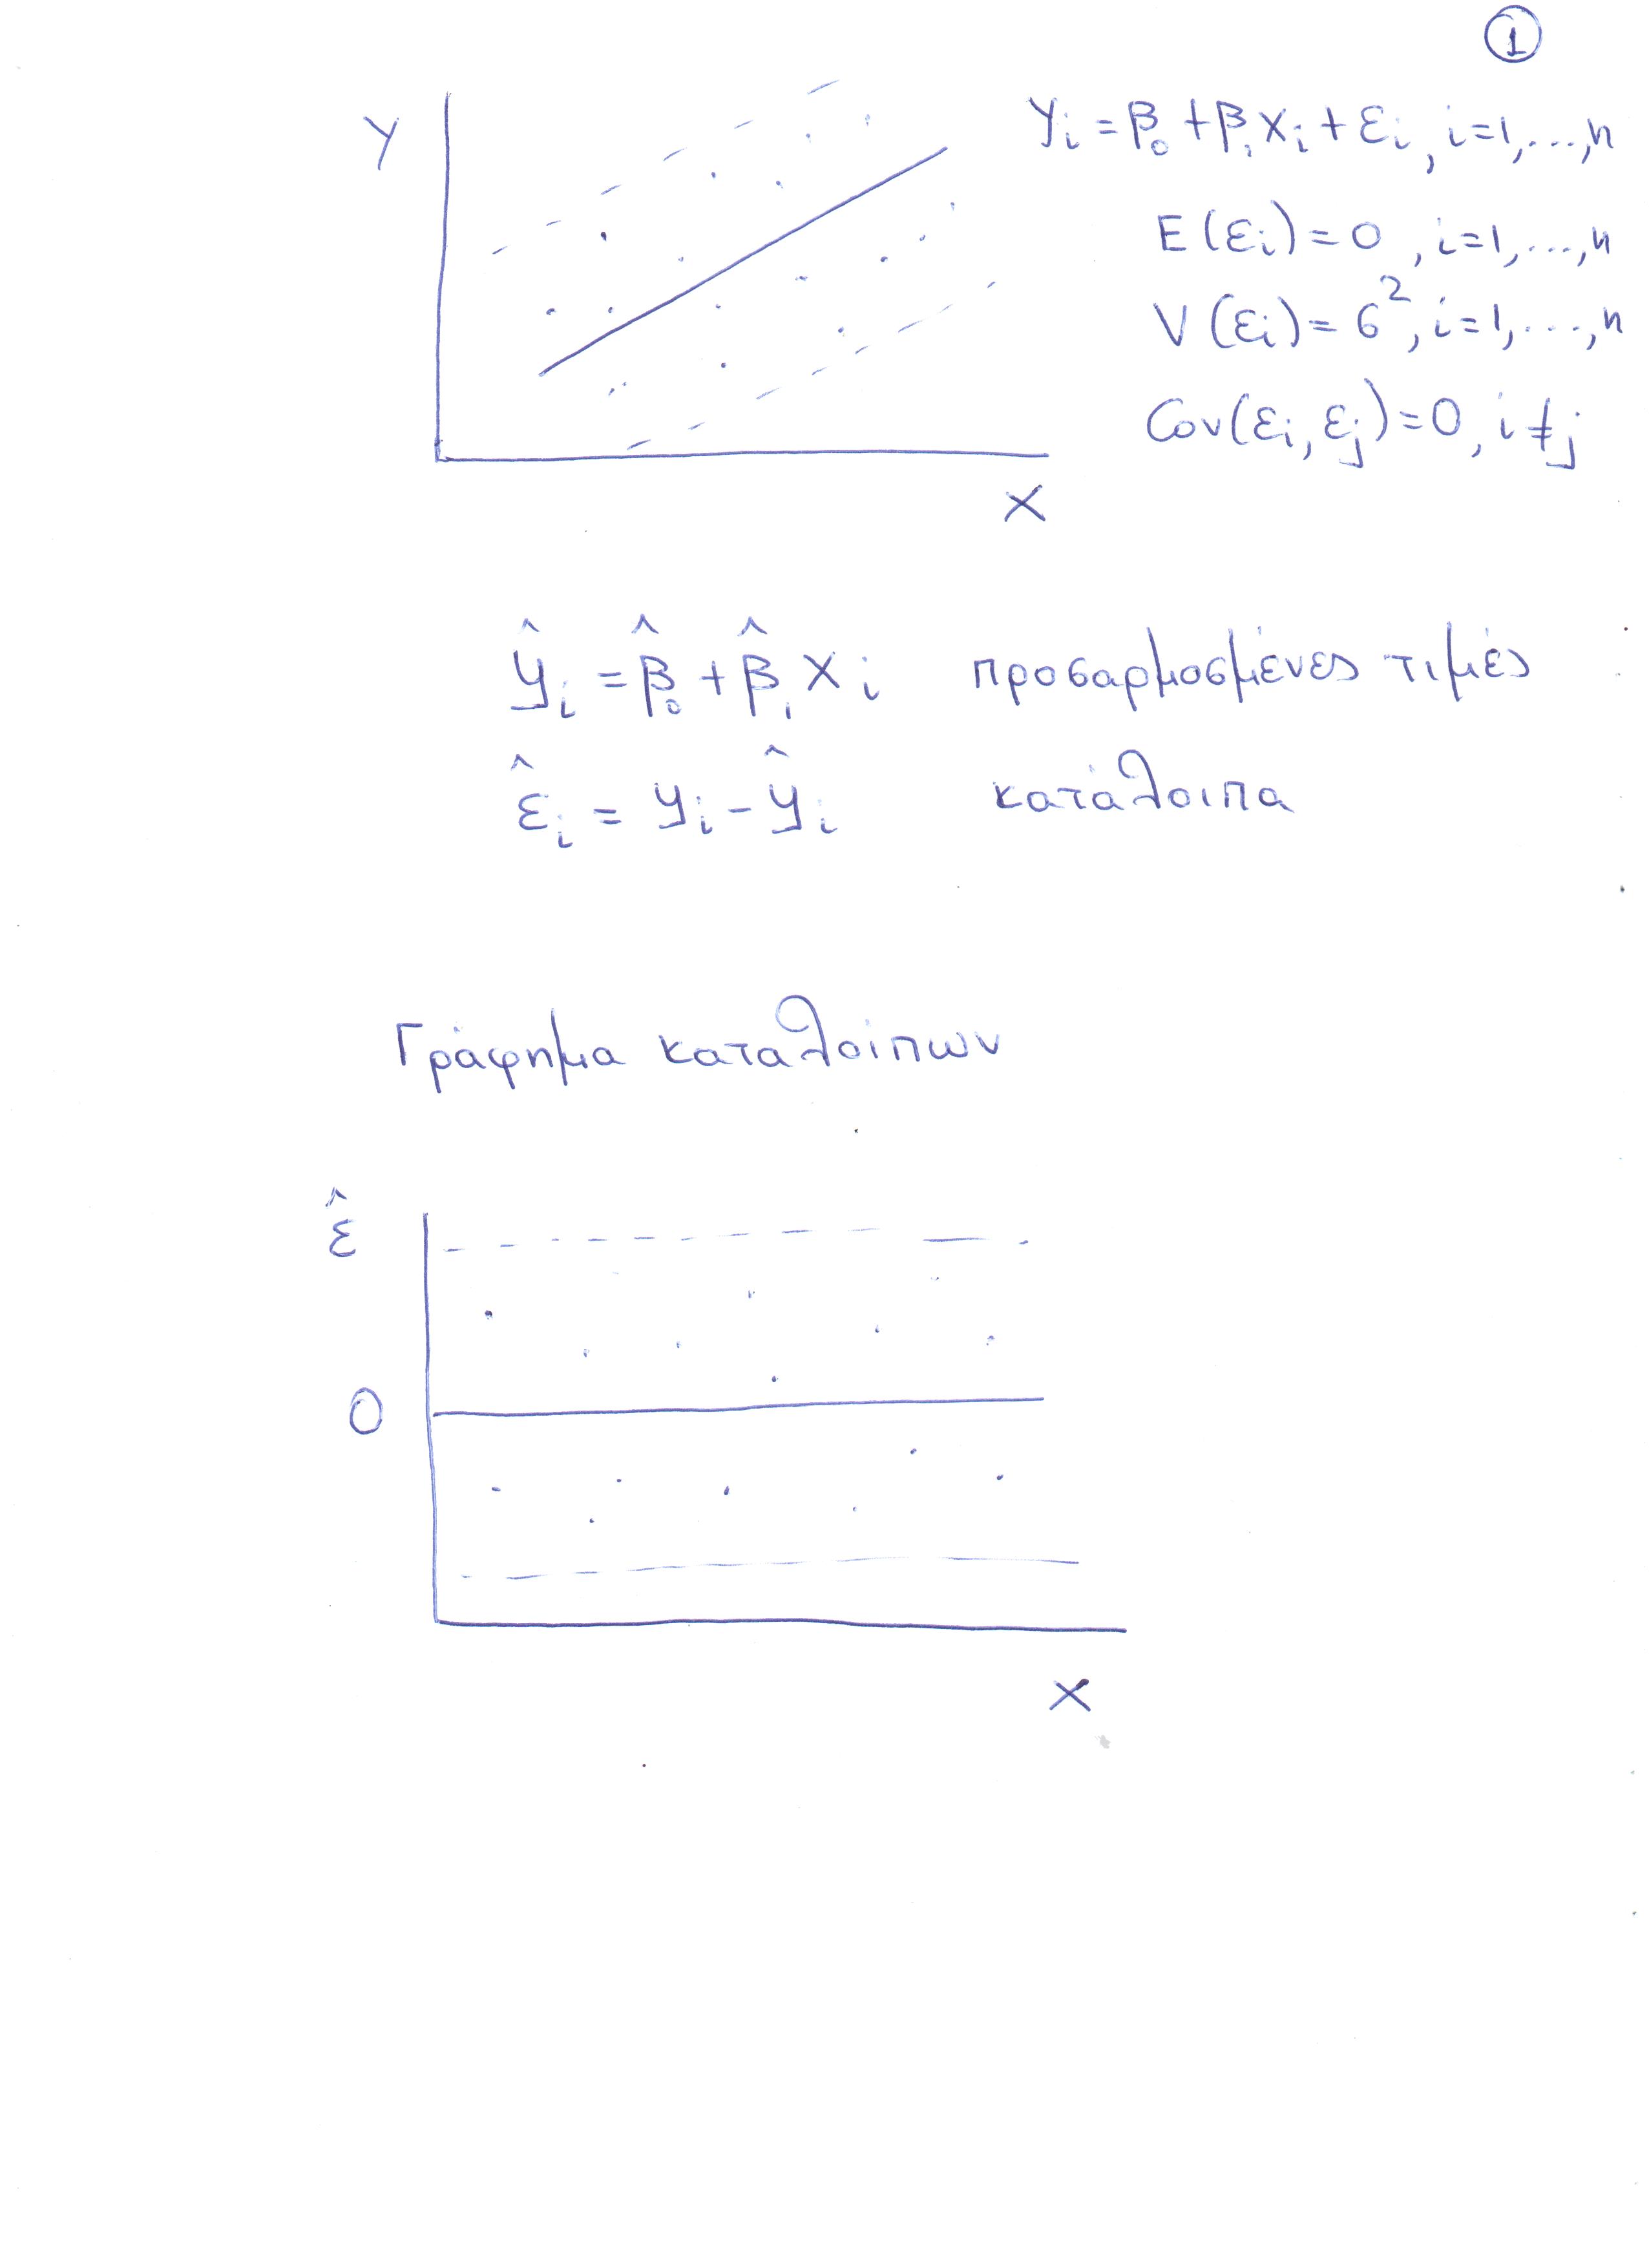 ①
Y
yᵢ = β₀ + β₁xᵢ + εᵢ, i=1,...,n
E(εᵢ)=0, i=1,...,n
V(εᵢ)=σ², i=1,...,n
Cov(εᵢ, εⱼ)=0, i≠j
X
ŷᵢ = β̂₀ + β̂₁xᵢ προσαρμοσμένες τιμές
ε̂ᵢ = yᵢ - ŷᵢ κατάλοιπα
Γράφημα καταλοίπων
ε̂
0
X